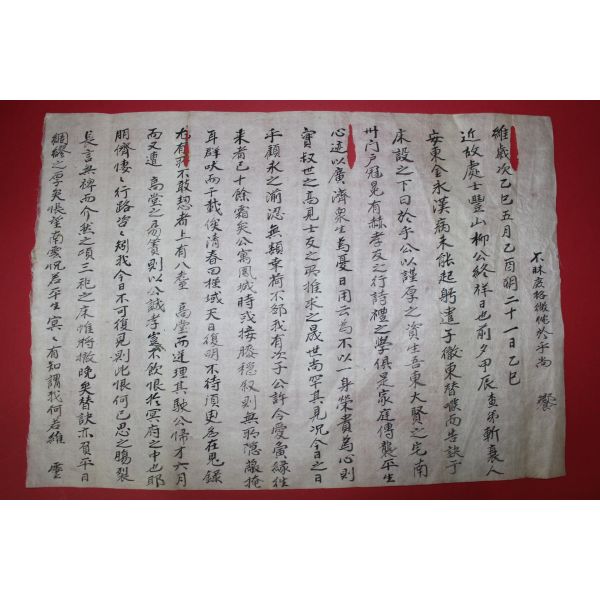 維歲次乙巳五月乙酉朔二十一日乙巳
近故處士豐山柳公終祥日也前夕甲辰查弟斬衰人
安東金永漢病未能起躬遣子徹東替 而告訣于
床設之下曰於乎公以謹厚之資生吾東大賢之宅南
州門戶冠冕有赫孝友之行詩禮之學俱是家庭傳襲平生
心遠以廣濟衆生爲憂日用云爲不以一身榮貴爲心則
實叔世之高見士友之所推求之晟世尚罕其見況今日之日
乎顧永之 無類幸荷不鄙我有次子公許令愛寅緣往
來者已十餘霜矣公寓鳳城時或接膝穩叙則無所隱蔽掩
耳群吠而千載俟淸春回槿域天日復明不待須臾 在鬼錄
尤有所不敢恝者上有八耋 高堂而遽理其駛公歸才六月
而又遭 高堂之易簀則以公誠孝寧不飮恨於冥府之中也耶
朋儕悽〻行路咨〻矧我今日不可復見則此恨何已思之腸裂
長言無裨而介然之頃三祀之床帷將撤晚矣替訣亦負平日
綢繆之厚矣悵望南雲怳若平生冥〻有知謂我何若維 靈
不昧庶格微忱於乎尚 饗